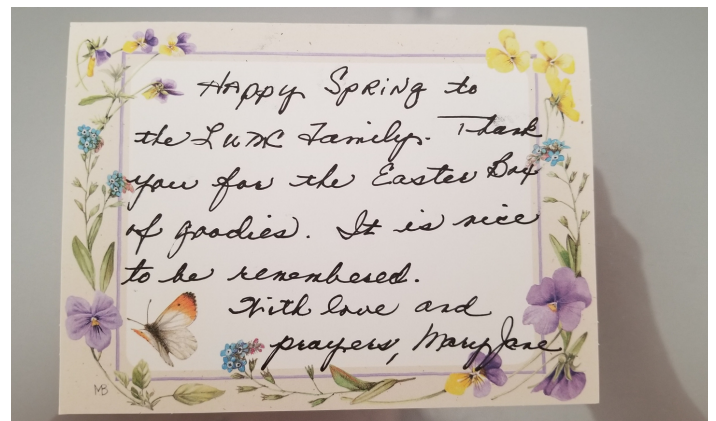 Happy Spring to
the LUMC Family. Thank
you for the Easter Box
of goodies. It is nice
to be remembered.
With love and
prayers, Mary Jane
MB